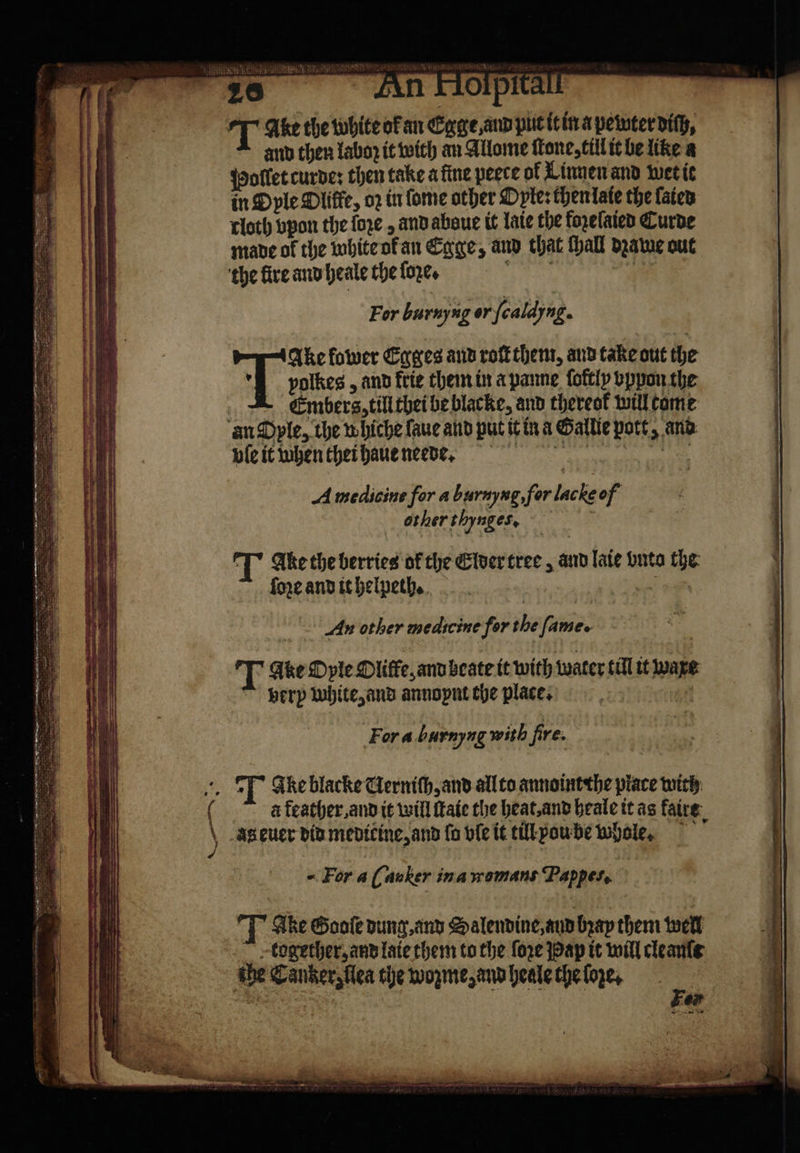 26 An Hoſpitall
TAke the white of an Egge, and put it in a pewter diſh,
and then labor it with an Allome ſtone, till it be like a
Poſſet curde: then take a fine peece of Linnen and wet it
in Oyle Oliffe, or in ſome other Oyle: then laie the ſaied
cloth vpon the ſore, and aboue it laie the foreſaied Curde
made of the white of an Egge, and that ſhall drawe out
the fire and heale the ſore.
For burnyng or ſcaldyng.
TAke fower Egges and roſt them, and take out the
yolkes, and frie them in a panne ſoftly vppon the
Embers, till thei be blacke, and thereof will come
an Oyle, the whiche ſaue and put it in a Gallie pott, and
vſe it when thei haue neede.
A medicine for a burnyng, for lacke of
other thynges.
TAke the berries of the Elder tree, and laie vnto the
ſore and it helpeth.
An other medicine for the ſame.
TAke Oyle Oliffe, and beate it with water till it waxe
very white, and annoynt the place.
For a burnyng with fire.
TAke blacke Verniſh, and all to annoint the place with
a feather, and it will ſtaie the heat, and heale it as faire
as euer did medicine, and ſo vſe it till you be whole.
For a Canker in a womans Pappes.
TAke Gooſe dung, and Salendine, and bray them well
together, and laie them to the ſore Pap it will cleanſe
the Canker, ſlea the worme, and heale the ſore.
For